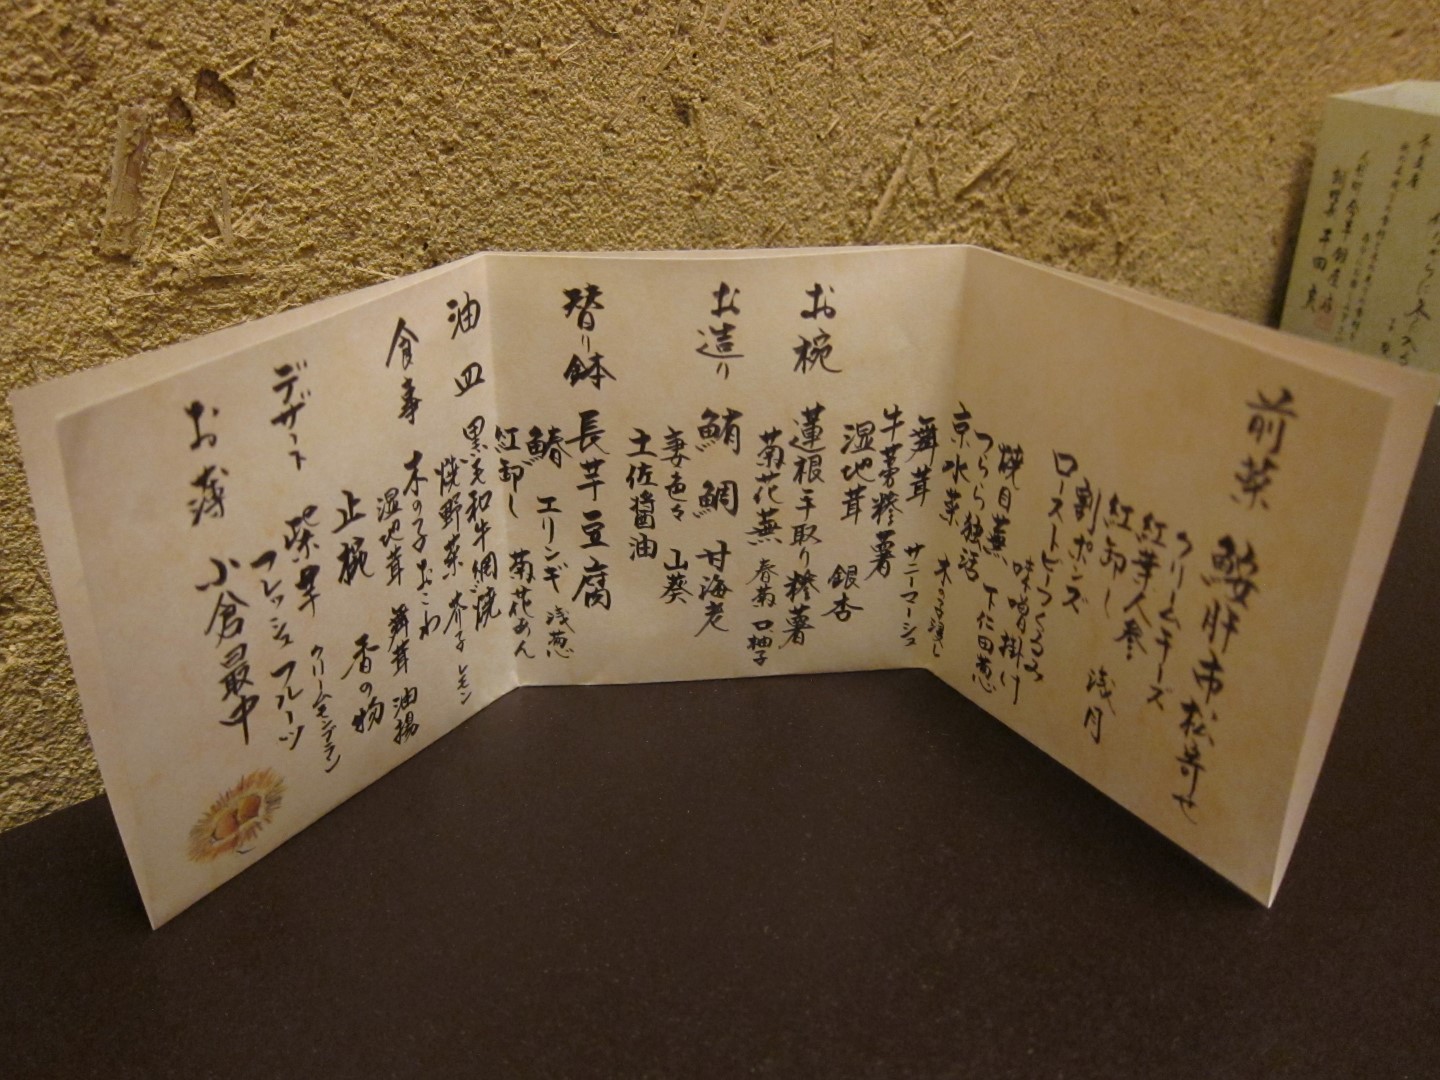 前菜 鮟肝市松寄せ
クリームチーズ
紅芽人参
紅卸し 浅月
割ポンズ
ローストビーフくるみ
味噌掛け
焼目蕪 下仁田葱
つらら独活
京水菜 木の子浸し
舞茸 サニーマーシュ
牛蒡糝薯
湿地茸 銀杏
お椀 蓮根手取り糝薯
菊花蕪 春菊 口柚子
お造り 鮪 鯛 甘海老
妻色々 山葵
土佐醤油
替り鉢 長芋豆腐
鰆 エリンギ 浅葱
紅卸し 菊花あん
油皿 黒毛和牛網焼
焼野菜 芥子 レモン
食事 木の子おこわ
湿地茸 舞茸 油揚
止椀 香の物
デザート 柴栗 クリームモンブラン
フレッシュフルーツ
お薄 小倉最中